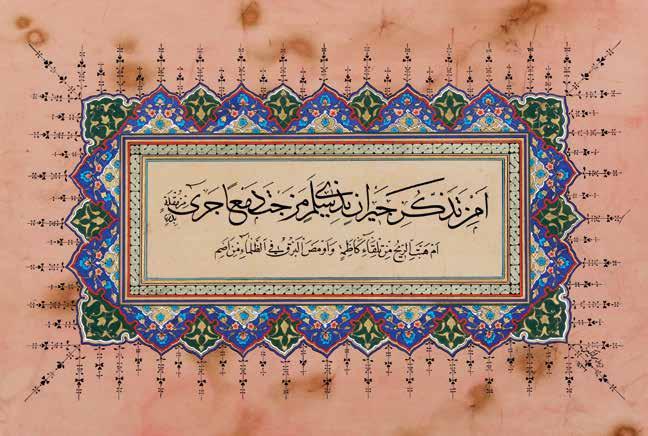 امن تذكر جيران بذي سلم مزجت دمعا جرى من مقلة بدم
ام هبت الريح من تلقاء كاظمة واومض البرق في الظلماء من اضم